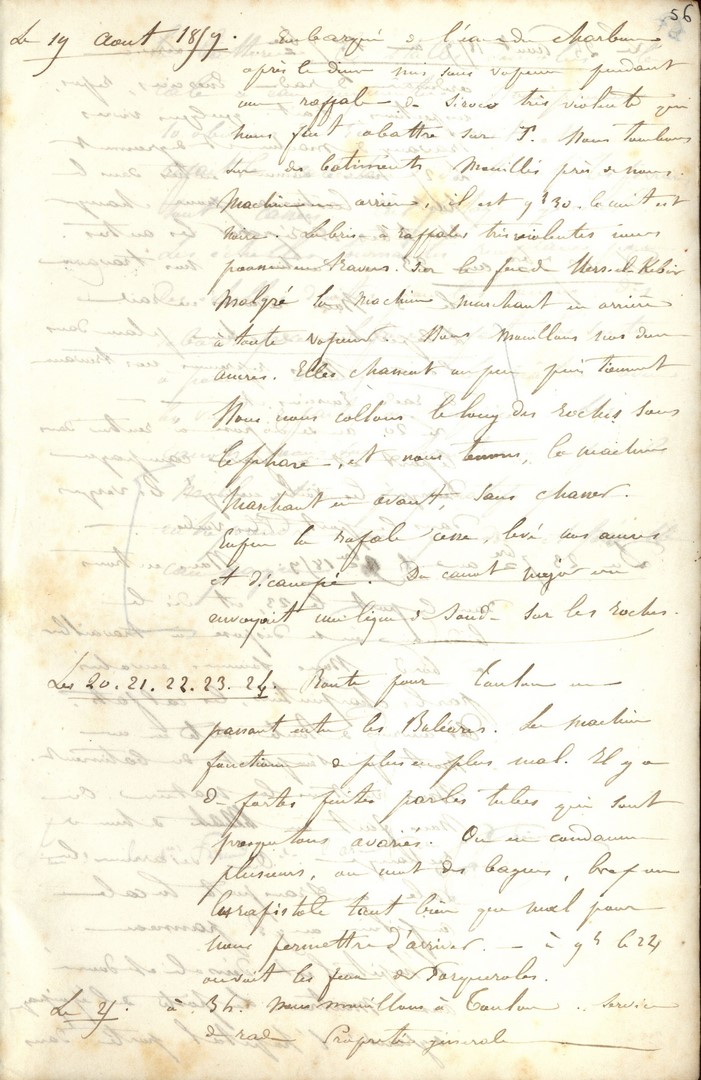 56
Le 19 Aout 1859. Embarqué de l'eau du charbon
après le diner mis sous vapeur pendant
une raffale de Siroco très violente qui
nous fait abattre sur T. Nous tombons
sur des batiments mouillés près de nous.
Machine en arrière, il est 9h30. la nuit est
noire. La brise à raffales très violentes nous
pousse en travers. Sur le feu de Mers-el-Kebir
Malgré la machine marchant en arrière
à toute vapeur. Nous mouillons nos deux
ancres. Elles chassent un peu puis tiennent
Nous nous collons le long des roches sous
le phare, et nous tenons, la machine
marchant en avant, sans chasser.
Enfin la rafale cesse, levé nos ancres
et décampé. Du canot major on
envoyait une ligne de Sonde sur les roches.
Les 20. 21. 22. 23. 24. Route pour Toulon en
passant entre les Baléares. La machine
fonctionne de plus en plus mal. Il y a
de fortes fuites par les tubes qui sont
presque tous avariés. On en condamne
plusieurs, on met des bagues, bref on
les rafistole tant bien que mal pour
nous permettre d'arriver. — à 9h le 24
on voit les feux de Porquerolles.
Le 25. à 3h. nous mouillons à Toulon .. Service
de rade Propreté générale